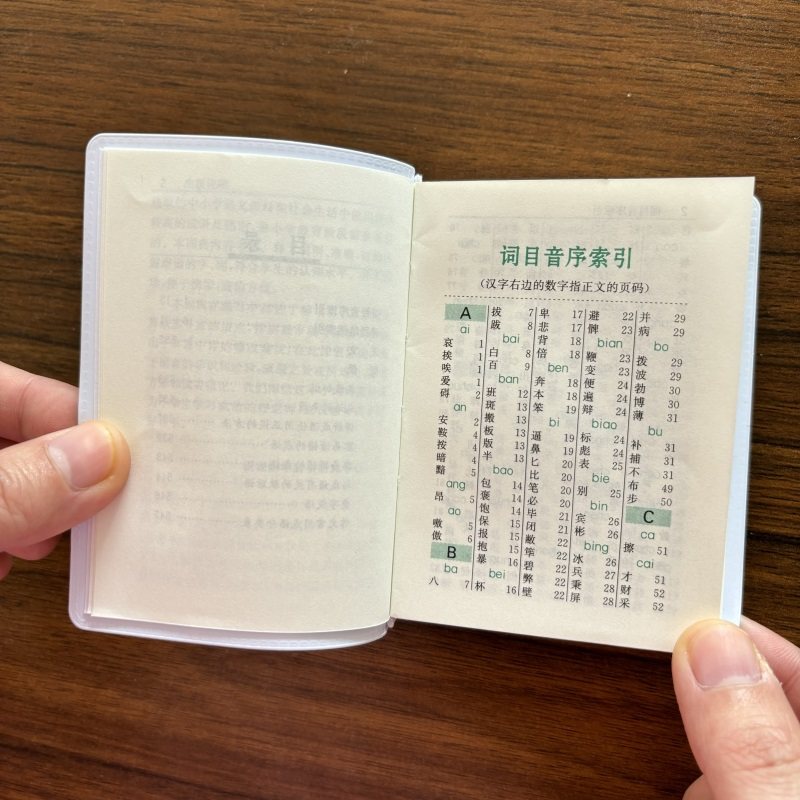 词目音序索引
(汉字右边的数字指正文的页码)
A
ai
哀 1
挨 1
唉 1
爱 1
碍 2
an
安 2
鞍 4
按 4
暗 4
黯 5
ang
昂 5
ao
嗷 5
傲 6
B
ba
八 7
拔 7
跋 8
bai
白 8
百 9
ban
班 12
斑 13
搬 13
板 13
版 13
半 13
bao
包 14
褒 14
饱 14
保 15
报 15
抱 15
暴 16
bei
杯 16
卑 17
悲 17
背 18
倍 18
ben
奔 18
本 18
笨 19
bi
逼 19
鼻 19
匕 20
比 20
笔 20
必 20
毕 21
闭 21
敝 22
筚 22
碧 22
弊 22
壁 22
避 22
髀 23
bian
鞭 23
变 23
便 24
遍 24
辩 24
biao
标 24
彪 24
表 25
bie
别 25
bin
宾 26
彬 26
bing
冰 26
兵 27
秉 28
屏 28
并 29
病 29
bo
拨 29
波 29
勃 30
博 30
薄 31
bu
补 31
捕 31
不 31
布 49
步 50
C
ca
擦 51
cai
才 51
财 52
采 52